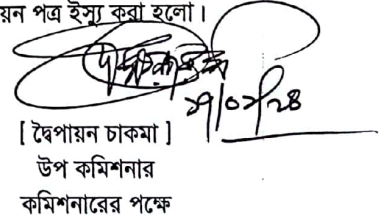 য়ন পত্র ইস্যু করা হলো।
[ দ্বৈপায়ন চাকমা ]
উপ কমিশনার
কমিশনারের পক্ষে